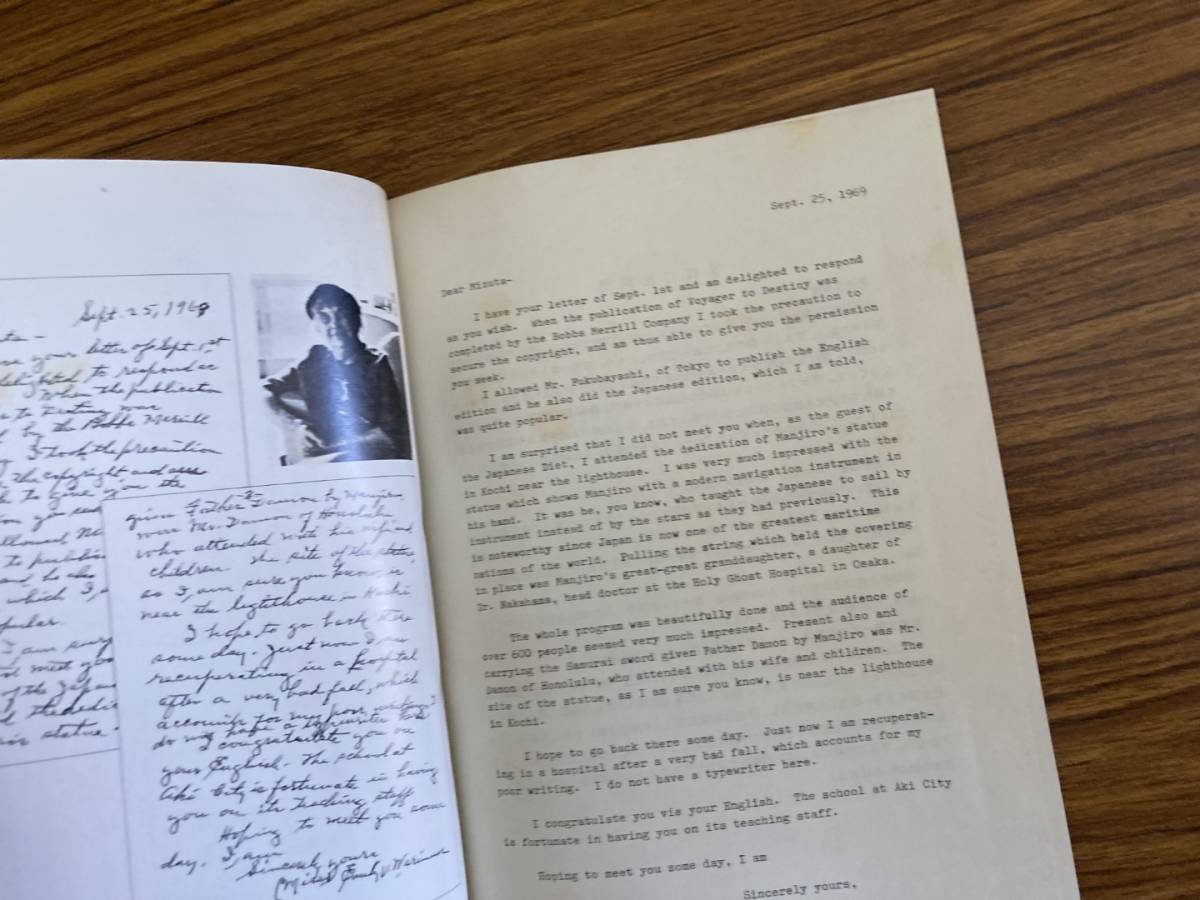 Sept. 25, 1969
ta-
e your letter of Sept. 1st
delighted to respond as
When the publication
to Destiny was
by the Bobbs Merrill
I took the precaution
the copyright and am
to give you the
you see
llowed M
to publish
and he als
which I,
pular.
I am surp
ot meet you
of the Japan
d the dedic
statue.
given Father Damon by Manjiro
was Mr. Damon of Honolulu
who attended with his wife and
children. The site of the statue,
as I am sure you know is
near the lighthouse in Kochi
I hope to go back there
some day. Just now I am
recuperating in a hospital
after a very bad fall, which
accounts for my poor writing. I
do not have a typewriter here
I congratulate you on
your English. The school at
Aki City is fortunate in having
you on its teaching staff
Hoping to meet you some
day. I am
Sincerely yours
Emily V. Warinner
Sept. 25, 1969
Dear Mizuta-
I have your letter of Sept. 1st and am delighted to respond
as you wish. When the publication of Voyager to Destiny was
completed by the Bobbs Merrill Company I took the precaution to
secure the copyright, and am thus able to give you the permission
you seek.
I allowed Mr. Fukubayashi, of Tokyo to publish the English
edition and he also did the Japanese edition, which I am told,
was quite popular.
I am surprised that I did not meet you when, as the guest of
the Japanese Diet, I attended the dedication of Manjiro's statue
in Kochi near the lighthouse. I was very much impressed with the
statue which shows Manjiro with a modern navigation instrument in
his hand. It was he, you know, who taught the Japanese to sail by
instrument instead of by the stars as they had previously. This
is noteworthy since Japan is now one of the greatest maritime
nations of the world. Pulling the string which held the covering
in place was Manjiro's great-great granddaughter, a daughter of
Dr. Nakahama, head doctor at the Holy Ghost Hospital in Osaka.
The whole program was beautifully done and the audience of
over 600 people seemed very much impressed. Present also and
carrying the Samurai sword given Father Damon by Manjiro was Mr.
Damon of Honolulu, who attended with his wife and children. The
site of the statue, as I am sure you know, is near the lighthouse
in Kochi.
I hope to go back there some day. Just now I am recuperat-
ing in a hospital after a very bad fall, which accounts for my
poor writing. I do not have a typewriter here.
I congratulate you vis your English. The school at Aki City
is fortunate in having you on its teaching staff.
Hoping to meet you some day, I am
Sincerely yours,